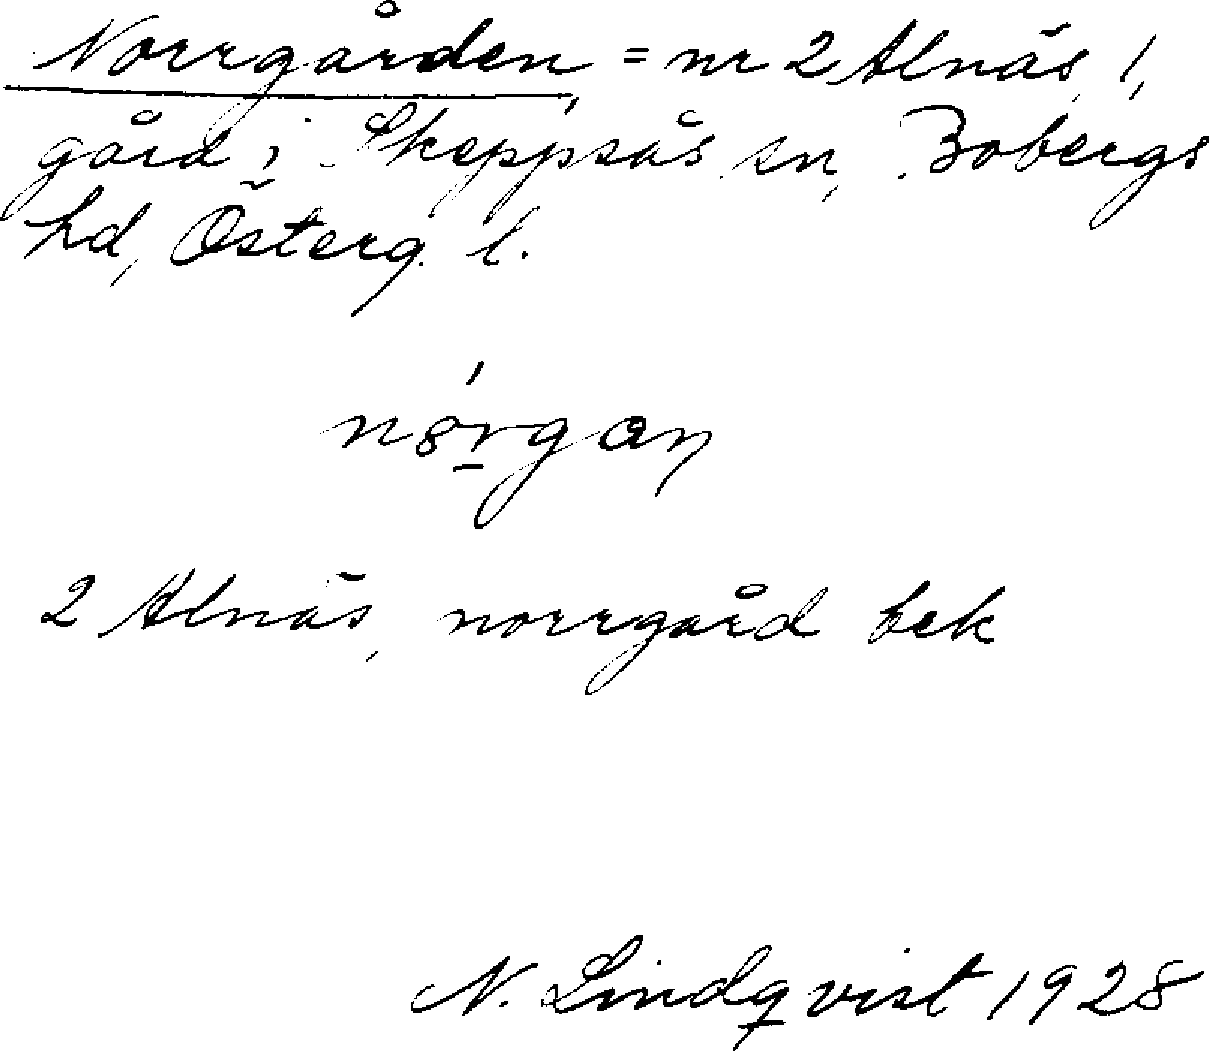 Norrgården, = nr 2 Alnäs 1,
gård i Skeppsås sn, Bobergs
hd, Österg. l.
2 Alnäs, norrgård bek
N. Lindqvist 1928